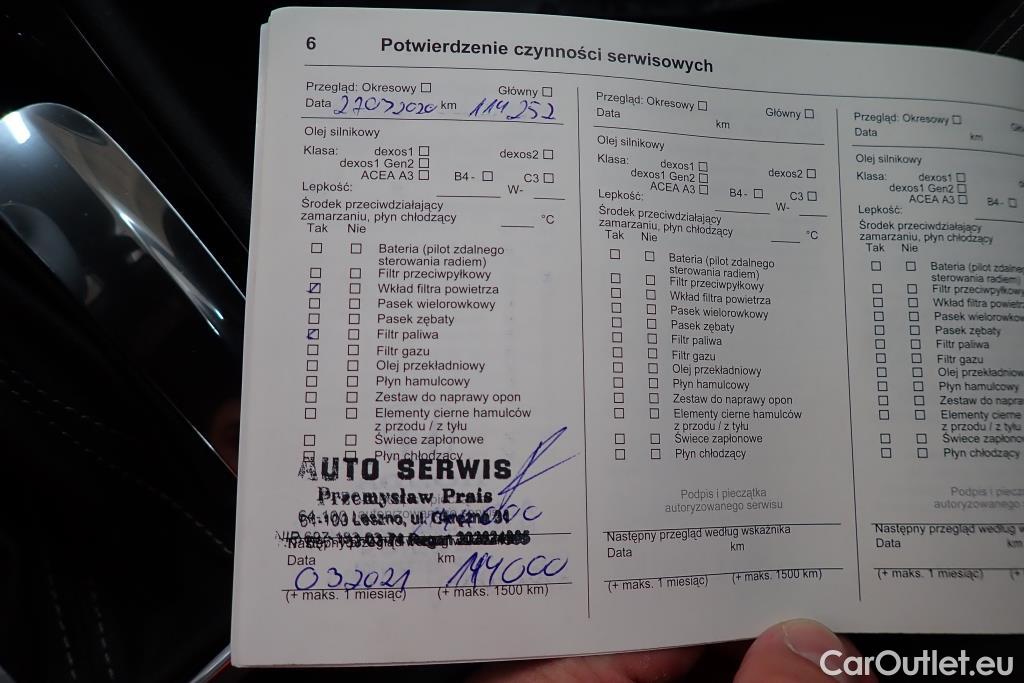 6 Potwierdzenie czynności serwisowych
Przegląd: Okresowy ☐ Główny ☐
Data 27032020 km 114252
Olej silnikowy
Klasa: dexos1 ☐ dexos2 ☐
dexos1 Gen2 ☐
ACEA A3 ☐ B4 - ☐ C3 ☐
Lepkość: W-
Środek przeciwdziałający
zamarzaniu, płyn chłodzący °C
Tak Nie
Bateria (pilot zdalnego
sterowania radiem)
Filtr przeciwpyłkowy
Wkład filtra powietrza
Pasek wielorowkowy
Pasek zębaty
Filtr paliwa
Filtr gazu
Olej przekładniowy
Płyn hamulcowy
Zestaw do naprawy opon
Elementy cierne hamulców
z przodu / z tyłu
Świece zapłonowe
Płyn chłodzący
AUTO SERWIS
Przemysław Prais
64-100 Leszno, ul. Okrężna
Data km
03.2021 144000
(+ maks. 1 miesiąc) (+ maks. 1500 km)
Przegląd: Okresowy ☐ Główny ☐
Data km
Olej silnikowy
Klasa: dexos1 ☐ dexos2 ☐
dexos1 Gen2 ☐
ACEA A3 ☐ B4 - ☐ C3 ☐
Lepkość: W-
Środek przeciwdziałający
zamarzaniu, płyn chłodzący °C
Tak Nie
Bateria (pilot zdalnego
sterowania radiem)
Filtr przeciwpyłkowy
Wkład filtra powietrza
Pasek wielorowkowy
Pasek zębaty
Filtr paliwa
Filtr gazu
Olej przekładniowy
Płyn hamulcowy
Zestaw do naprawy opon
Elementy cierne hamulców
z przodu / z tyłu
Świece zapłonowe
Płyn chłodzący
Podpis i pieczątka
autoryzowanego serwisu
Następny przegląd według wskaźnika
Data km
(+ maks. 1 miesiąc) (+ maks. 1500 km)
Przegląd: Okresowy ☐
Data km
Olej silnikowy
Klasa: dexos1 ☐
dexos1 Gen2 ☐
ACEA A3 ☐ B4 -
Lepkość:
Środek przeciwdziałający
zamarzaniu, płyn chłodzący
Tak Nie
Bateria (pilot
sterowania radiem)
Filtr przeciwpyłkowy
Wkład filtra
Pasek
Pasek zębaty
Filtr paliwa
Filtr gazu
Olej
Płyn hamulcowy
Zestaw do
Elementy cierne
z przodu / z tyłu
Świece
Płyn chłodzący
Podpis i
autoryzowanego
Następny przegląd według
Data km
(+ maks. 1 miesiąc)
CarOutlet.eu